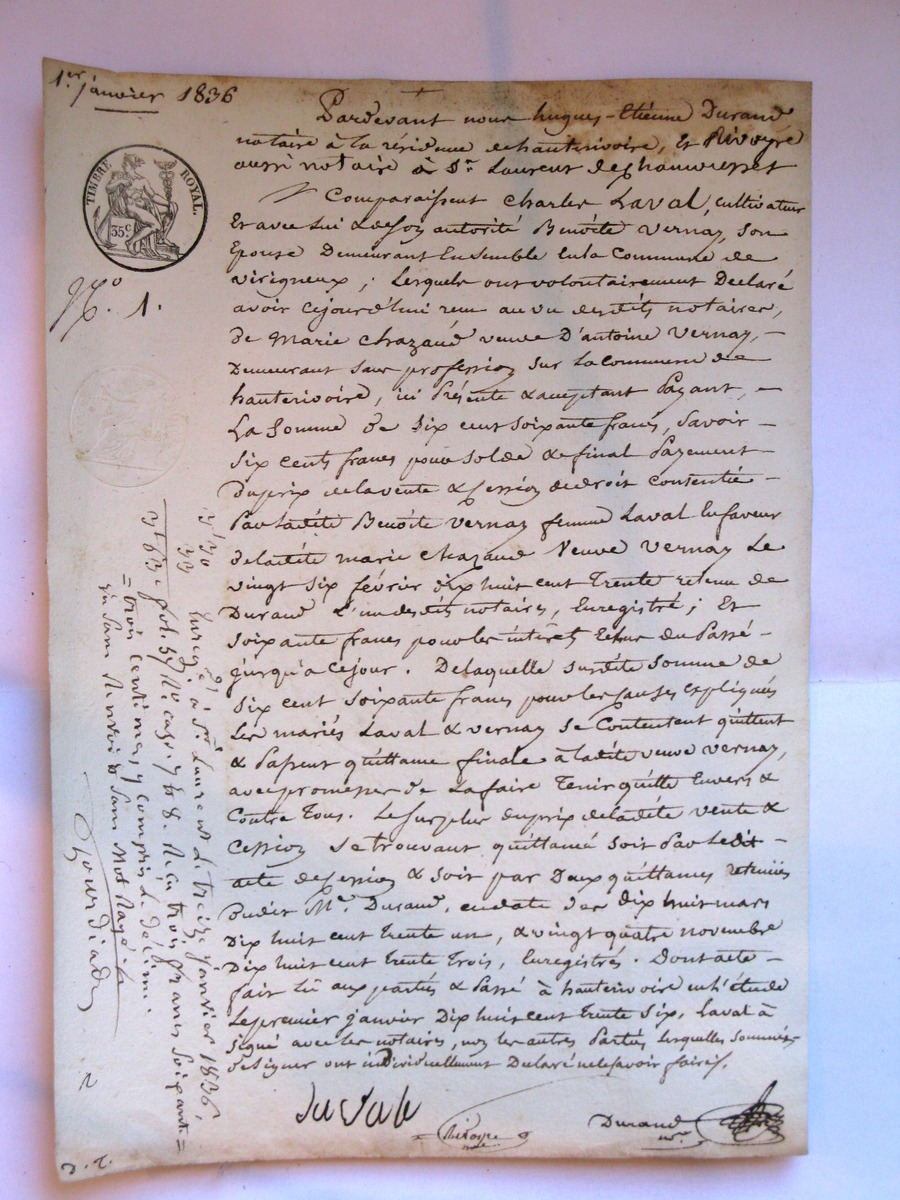 1.er janvier 1836
TIMBRE ROYAL.
35c
No. 1.
Pardevant nous hugues-Etiénne Durand
notaire à la résidence de hauterivoire, et Rivoyre
aussi notaire à St. Laurent de Chamousset
Comparaissent Charles Laval, cultivateur
Et avec lui & de son autorité Benoîte Vernay, son
Epouse Demeurant Ensemble en la Commune de
virigneux ; Lesquels ont volontairement Declaré
avoir cejourd'hui reçu au vu desdits notaires,
de Marie Chazaud veuve D'antoine Vernay,
Demeurant sans profession sur la commune de
hauterivoire, ici Présente & acceptant Payant,
La Somme de Six cent soixante francs, savoir
Six cents francs pour solde & final Payement
du prix de la vente & Cession de droit contentie
Par Ladite Benoîte Vernay femme Laval En faveur
de ladite marie Chazaud Veuve Vernay Le
vingt Six février dix huit cent Trente retenu de
Durand L'un desdits notaires, Enregistré ; Et
soixante francs pour les intérêts Echus du Passé
jusqu'a cejour. De laquelle susdite somme de
Six cent soixante francs pour les causes Expliqués
Les mariés Laval & vernay se Contentent quittent
& Passent quittance finale à ladite veuve vernay,
avec promesse de La faire Tenir quitte Envers &
Contre Tous. Le surplus du prix de ladite vente &
Cession se trouvant quittancé soit Par ledit
acte de Cession & soit par Deux quittances retenues
dudit Me. Durand, en date des Dix huit mars
Dix huit cent Trente un, & vingt quatre novembre
Dix huit cent Trente Trois, Enregistrés. Dont acte
fait lu aux parties & Passé à hauterivoire en l'étude
Le premier janvier Dix huit cent Trente Six, Laval à
signé avec les notaires, non les autres Parties Lesquelles sommées
de signer ont individuellement Declaré ne le savoir faire.
Rivoyre
Durand
3f 30
33
3f 63
Enreg. à St. Laurent le treize janvier 1836,
fol. 57 Ro. case 7 & 8. Reçu trois francs soixante
trois centimes y compris le décime.
Sans Renvoi & Sans Mot Rayé